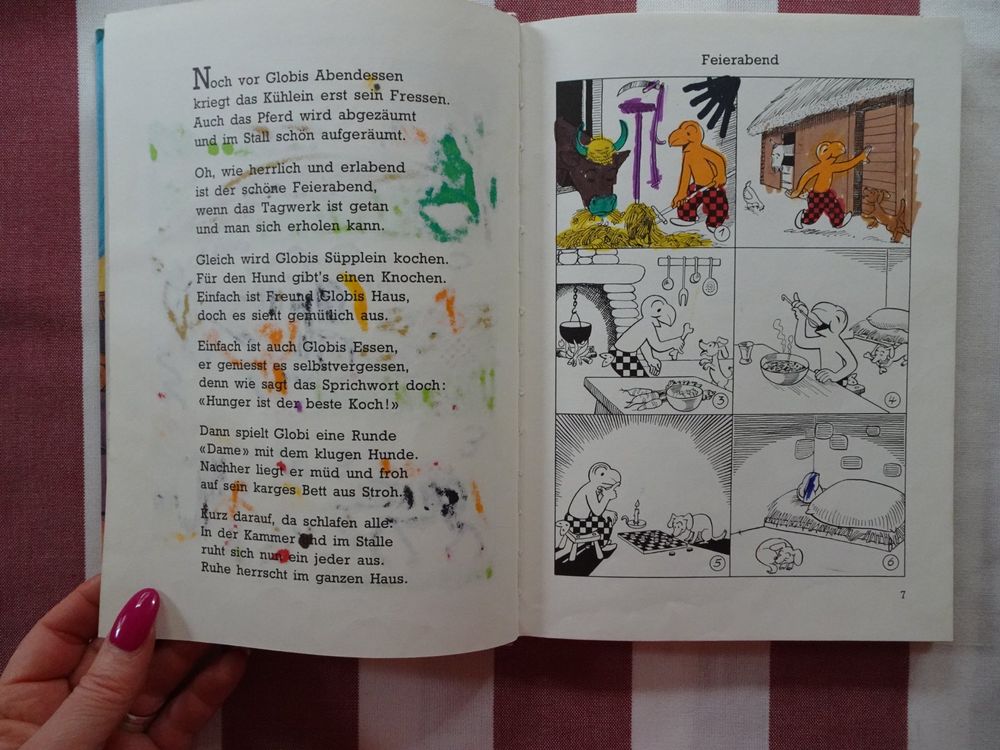 Noch vor Globis Abendessen
kriegt das Kühlein erst sein Fressen.
Auch das Pferd wird abgezäumt
und im Stall schön aufgeräumt.
Oh, wie herrlich und erlabend
ist der schöne Feierabend,
wenn das Tagwerk ist getan
und man sich erholen kann.
Gleich wird Globis Süpplein kochen.
Für den Hund gibt's einen Knochen.
Einfach ist Freund Globis Haus,
doch es sieht gemütlich aus.
Einfach ist auch Globis Essen,
er geniesst es selbstvergessen,
denn wie sagt das Sprichwort doch:
«Hunger ist der beste Koch!»
Dann spielt Globi eine Runde
«Dame» mit dem klugen Hunde.
Nachher liegt er müd und froh
auf sein karges Bett aus Stroh.
Kurz darauf, da schlafen alle.
In der Kammer und im Stalle
ruht sich nun ein jeder aus.
Ruhe herrscht im ganzen Haus.
Feierabend
1
3
4
5
6
7